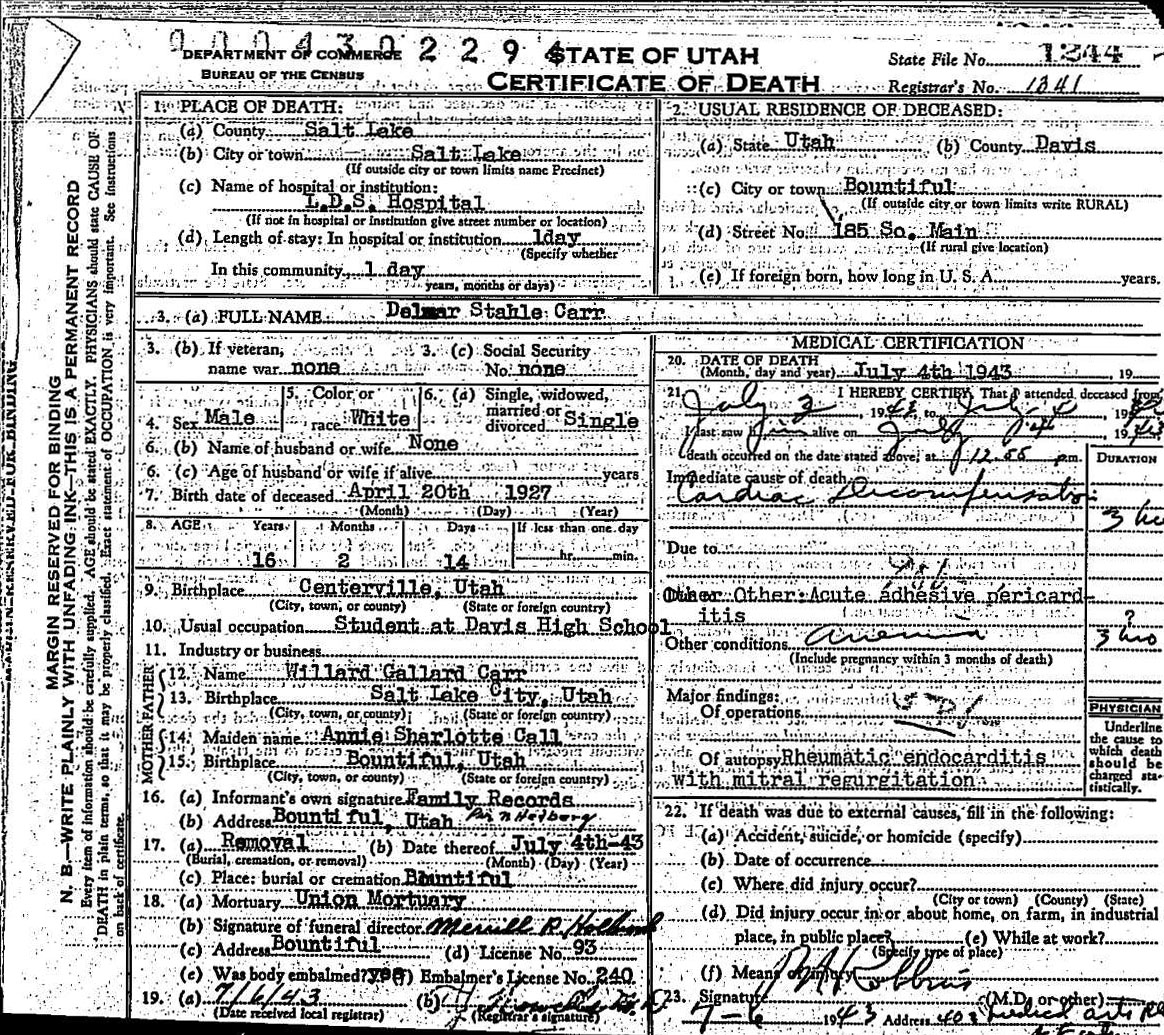 9 0 0 4 3 0 2 2 9 4 STATE OF UTAH
DEPARTMENT OF COMMERCE
BUREAU OF THE CENSUS
CERTIFICATE OF DEATH
State File No. 1244
Registrar's No. 1341
MARGIN RESERVED FOR BINDING
N. B.—WRITE PLAINLY WITH UNFADING INK—THIS IS A PERMANENT RECORD
Every item of information should be carefully supplied. AGE should be stated EXACTLY. PHYSICIANS should state CAUSE OF
DEATH in plain terms, so that it may be properly classified. Exact statement of OCCUPATION is very important. See instructions
on back of certificate.
1. PLACE OF DEATH:
(a) County Salt Lake
(b) City or town Salt Lake
(If outside city or town limits name Precinct)
(c) Name of hospital or institution:
L.D.S. Hospital
(If not in hospital or institution give street number or location)
(d) Length of stay: In hospital or institution 1day
(Specify whether
In this community 1 day
years, months or days)
2. USUAL RESIDENCE OF DECEASED:
(a) State Utah (b) County Davis
(c) City or town Bountiful
(If outside city or town limits write RURAL)
(d) Street No. 185 So. Main
(If rural give location)
(e) If foreign born, how long in U. S. A. years.
3. (a) FULL NAME Delmar Stahle Carr
3. (b) If veteran, 3. (c) Social Security
name war none No. none
5. Color or 6. (a) Single, widowed,
married or
4. Sex Male race White divorced Single
6. (b) Name of husband or wife None
6. (c) Age of husband or wife if alive years
7. Birth date of deceased April 20th 1927
(Month) (Day) (Year)
8. AGE Years Months Days If less than one day
16 2 14 hr. min.
9. Birthplace Centerville, Utah
(City, town, or county) (State or foreign country)
10. Usual occupation Student at Davis High School
11. Industry or business
FATHER
12. Name Willard Gallard Carr
13. Birthplace Salt Lake City, Utah
(City, town, or county) (State or foreign country)
MOTHER
14. Maiden name Annie Sharlotte Call
15. Birthplace Bountiful, Utah
(City, town, or county) (State or foreign country)
16. (a) Informant's own signature Family Records
(b) Address Bountiful, Utah
17. (a) Removal (b) Date thereof July 4th-43
(Burial, cremation, or removal) (Month) (Day) (Year)
(c) Place: burial or cremation Bountiful
18. (a) Mortuary Union Mortuary
(b) Signature of funeral director Merrill R. Holbrook
(c) Address Bountiful (d) License No. 93
(e) Was body embalmed? yes (f) Embalmer's License No. 240
19. (a) 7/6/43 (b)
(Date received local registrar) (Registrar's signature)
MEDICAL CERTIFICATION
20. DATE OF DEATH
(Month, day and year) July 4th 1943, 19
21. I HEREBY CERTIFY, That I attended deceased from
July 3, 1943, to July 4, 19
I last saw him alive on July 4, 1943
death occurred on the date stated above, at 12.55 p.m.
DURATION
Immediate cause of death
Cardiac Decompensation
3 ho
Due to
Other: Acute adhesive pericard-
itis ?
Other conditions Anemia 3 hro
(Include pregnancy within 3 months of death)
Major findings:
Of operations
Of autopsy Rheumatic endocarditis
with mitral regurgitation
PHYSICIAN
Underline
the cause to
which death
should be
charged sta-
tistically.
22. If death was due to external causes, fill in the following:
(a) Accident, suicide, or homicide (specify)
(b) Date of occurrence
(c) Where did injury occur?
(City or town) (County) (State)
(d) Did injury occur in or about home, on farm, in industrial
place, in public place? (e) While at work?
(Specify type of place)
(f) Means of injury
23. Signature Robbins (M.D. or other)
7-6 1943 Address 403 Medical Arts